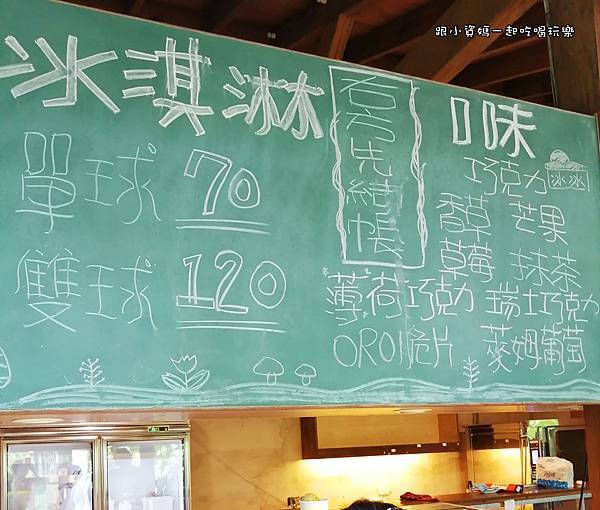 跟小資媽一起吃喝玩樂
冰淇淋
單球 70
雙球 120
右方先結帳
口味
巧克力
冰冰
香草 芒果
草莓 抹茶
薄荷巧克力 瑞士巧克力
ORO脆片 萊姆葡萄